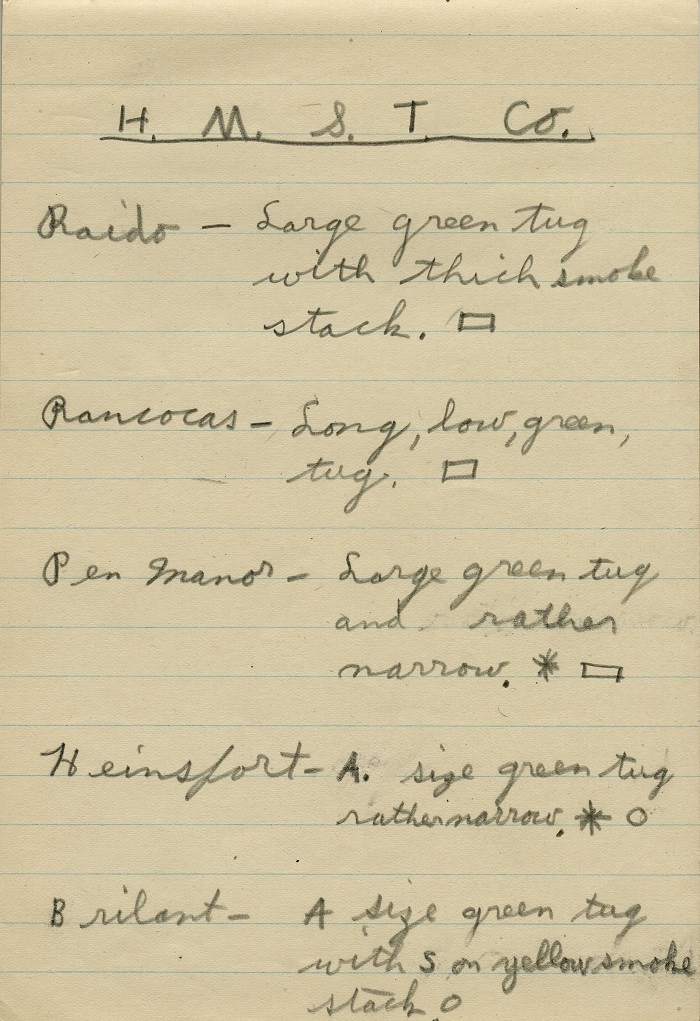 H. M. S. T. Co.
Raido — Large green tug
with thick smoke
stack. ▭
Rancocas — Long, low, green,
tug. ▭
Pen Manor — Large green tug
and rather
narrow. * ▭
Heinsfort — A. size green tug
rather narrow. * ○
Brilant — A size green tug
with S on yellow smoke
stack ○